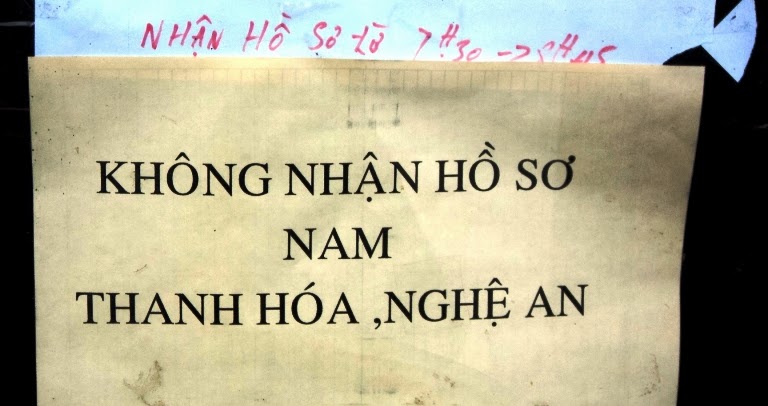 NHẬN HỒ SƠ từ 7H30 ->
KHÔNG NHẬN HỒ SƠ
NAM
THANH HÓA ,NGHỆ AN